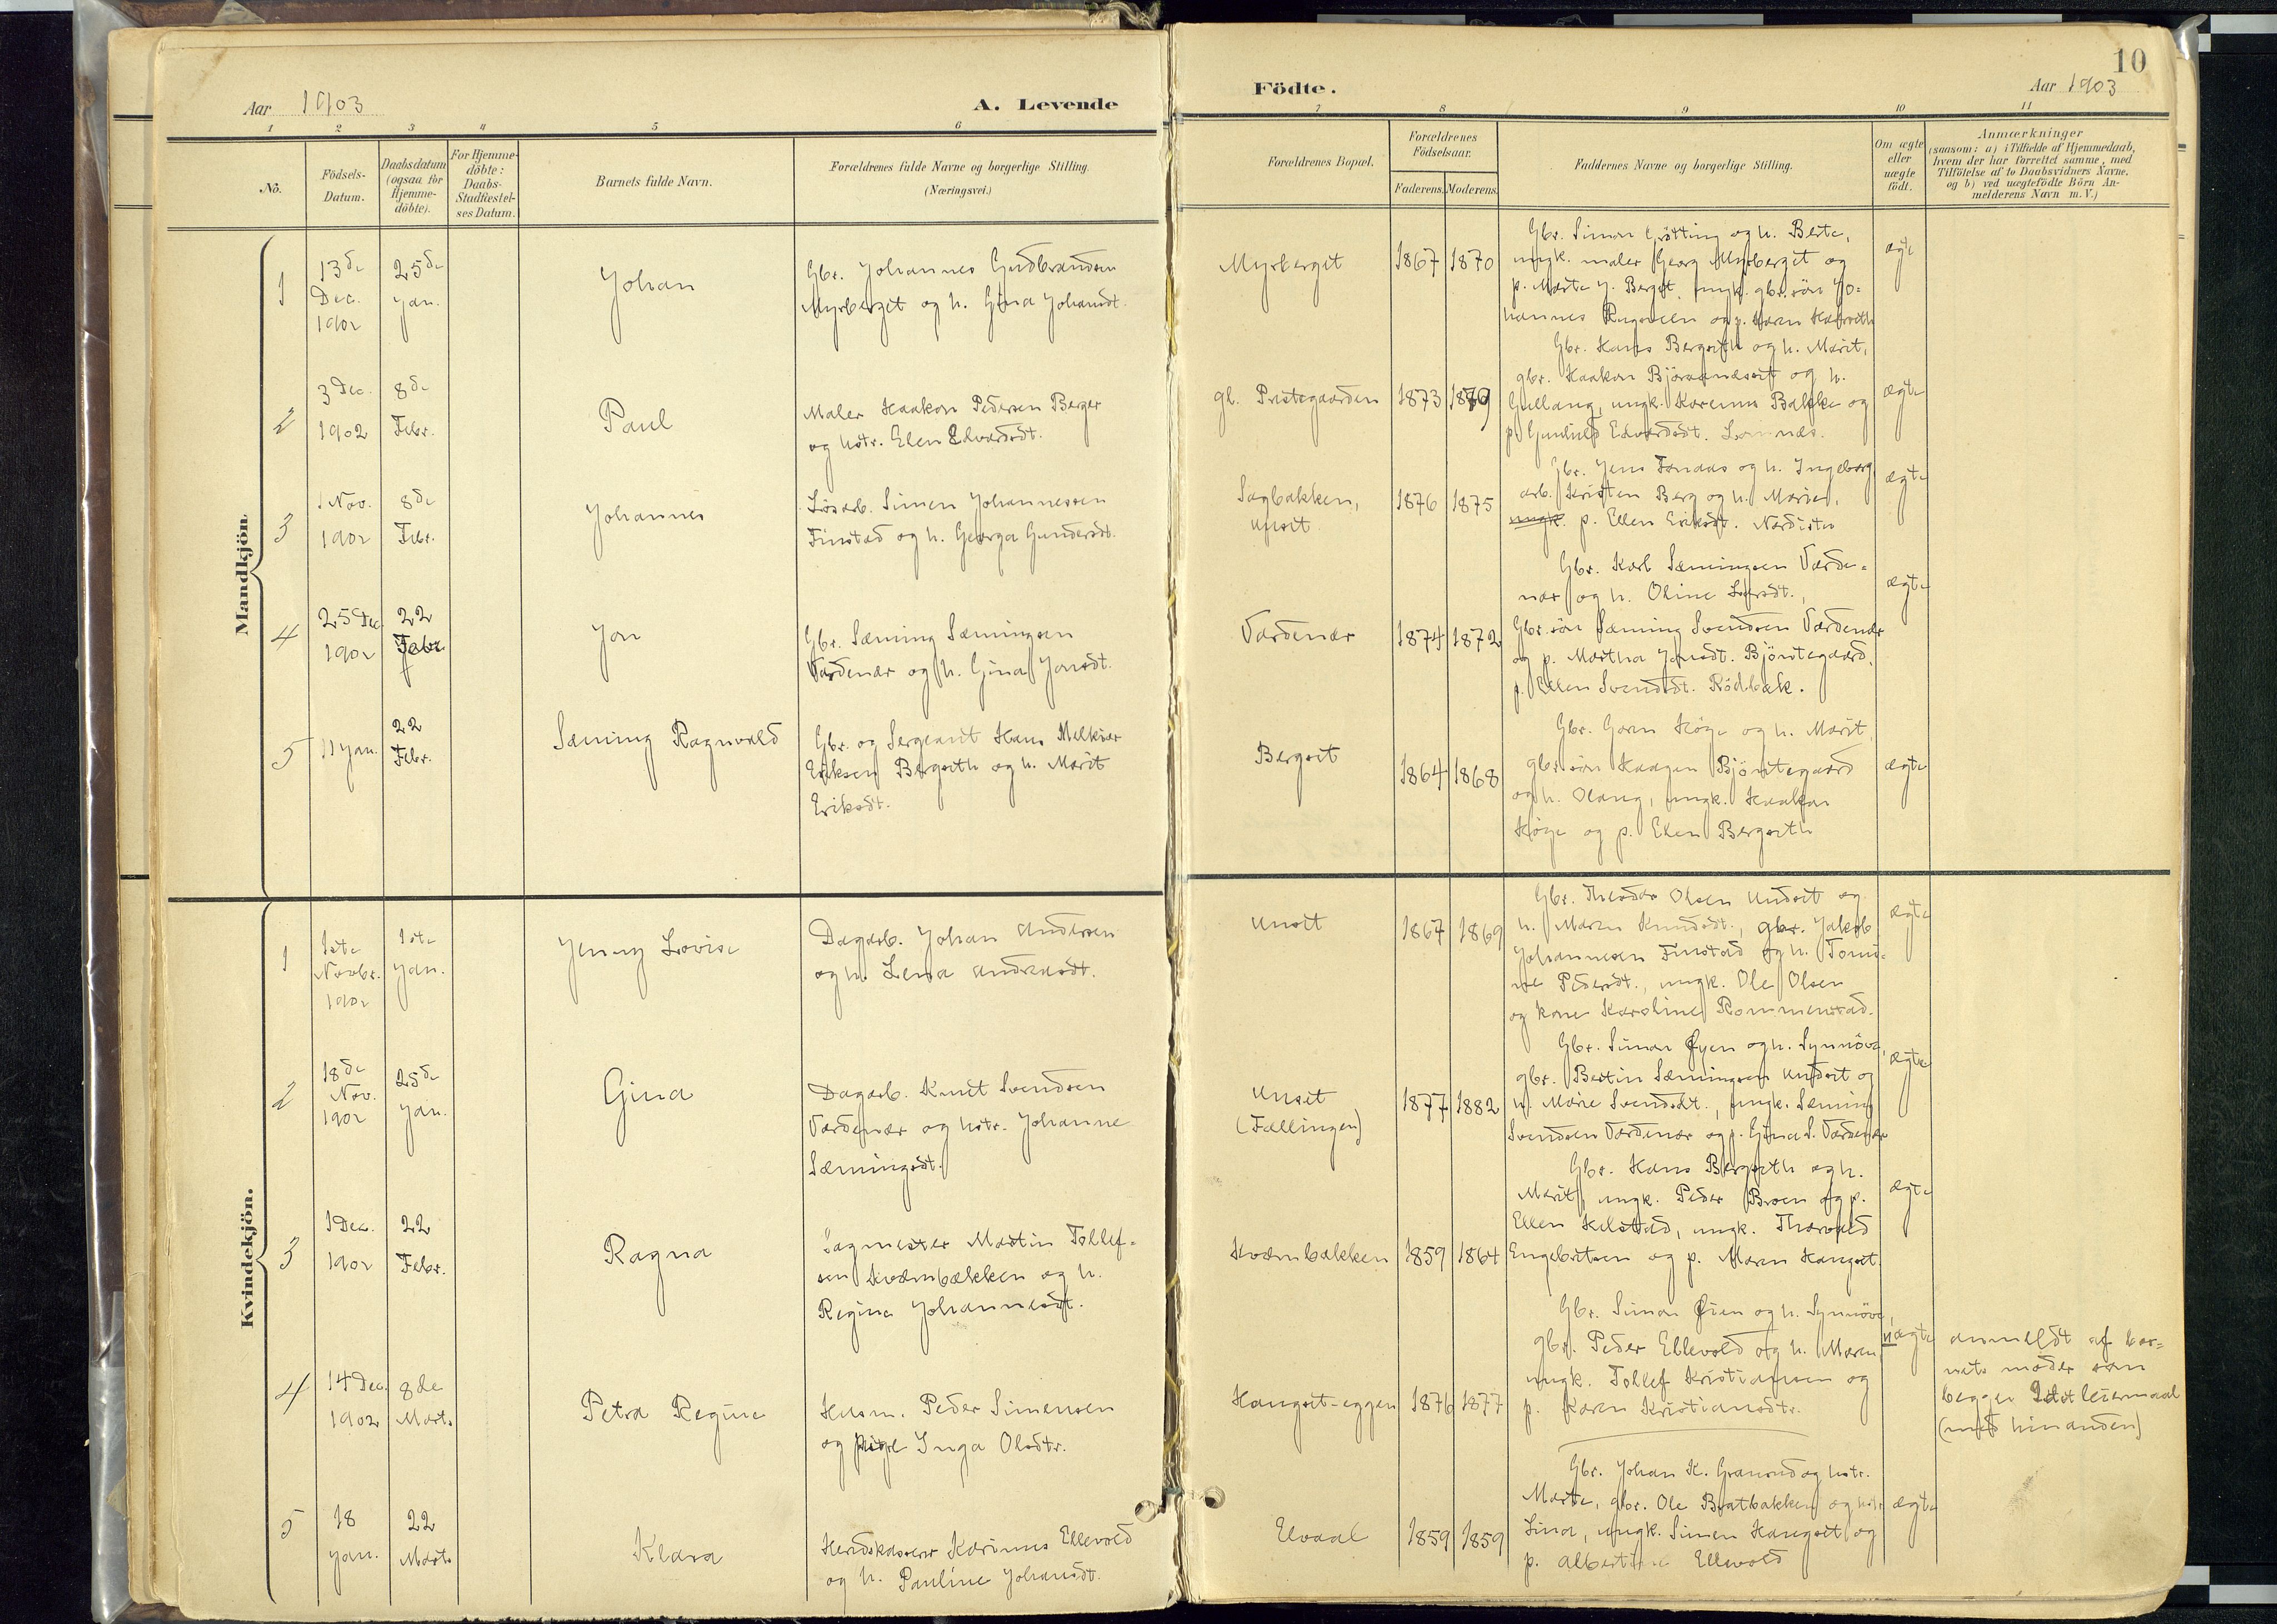 10
Aar 1903
A. Levende
Födte.
Aar 1903
1 2 3 4 5 6 7 8 9 10 11
No.
Födsels-
Datum.
Daabsdatum
(ogsaa for
Hjemme-
döbte).
For Hjemme-
döbte:
Daabs-
Stadfæstel-
ses Datum.
Barnets fulde Navn.
Forældrenes fulde Navne og borgerlige Stilling.
(Næringsvei.)
Forældrenes Bopæl.
Forældrenes
Födselsaar.
Faderens. Moderens.
Faddernes Navne og borgerlige Stilling.
Om ægte
eller
uægte
födt.
Anmærkninger
(saasom: a) i Tilfælde af Hjemmedaab,
hvem der har forrettet samme, med
Tilföielse af to Daabsvidners Navne.
og b) ved uægtefödte Börn An-
melderens Navn m. V.)
Mandkjön.
1
13de
Dec.
1902
25de
Jan.
Johan
Gbr. Johannes Gudbrandsen
Myrberget og h. Gina Johansdt.
Myrberget
1867 1870
Gbr. Simon Grötting og h. Berte,
ungk. maler Georg Myrberget og
p. Marte J. Berget, ungk. gbr.sön Jo-
hannes og p. Karen
ægte
2
3 Dec.
1902
8de
Febr.
Paul
Maler Haakon Pedersen Berger
og hstr. Elen Edvardsdt.
gl. Prestegaarden
1873 1879
Gbr. Hans Bergseth og h. Marit,
gbr. Haakon Björaanesset og h.
Gullaug, ungk. Karenus Bakke og
p. Gunhild Edvardsdt. Lomnæs.
ægte
3
1 Nov.
1902
8de
Febr.
Johannes
Lösarb. Simen Johannessen
Finstad og h. Georga Gundersdt.
Sagbakken,
Unset
1876 1875
Gbr. Jens Fonaas og h. Ingeborg
arb. Kristen Berg og h. Marie,
ungk. p. Ellen Eriksdt. Nordistu
ægte
4
25 Dec.
1902
22
Febr.
Jon
Gbr. Sæming Sæmingsen
Vardenær og h. Gina Jonsdt.
Vardenær
1874 1872
Gbr. Karl Sæmingsen Varde-
nær og h. Oline Larsdt.,
Gbr.sön Sæming Svendsen Vardenær
og p. Martha Jonsdt. Björntegaard,
p. Ellen Svendsdt. Rödbæk.
ægte
5
11 Jan.
22
Febr.
Sæming Ragnvald
Gbr. og Sergeant Hans Melkior
Eriksen Bergseth og h. Marit
Eriksdt.
Bergset
1864 1868
Gbr. Goren Höye og h. Marit,
gbr.sön Haagen Björntegaard
og h. Olaug, ungk. Haakon
Höye og p. Elen Bergseth
ægte
Kvindekjön.
1
1ste
Novbr.
1902
1ste
Jan.
Jenny Lovise
Dagarb. Johan Andersen
og h. Lena Andreasdt.
Unset
1867 1869
Gbr. Theodor Olsen Undset og
h. Maren Knudsdt., gbr. Jakob
Johannesen Finstad og h. Tomi-
ne Pedersdt., ungk. Ole Olsen
og kone Karoline Rommenstad.
ægte
2
18de
Nov.
1902
25de
Jan.
Gina
Dagarb. Knut Svendsen
Vardenær og hstr. Johanne
Sæmingsdt.
Unset
(Fællingen)
1877 1882
Gbr. Simon Öyen og h. Synnöve,
gbr. Bertin Sæmingsen Undset og
h. Marie Svendsdt., ungk. Sæming
Svendsen Vardenær og p. Gina S. Vardenær
ægte
3
1 Dec.
1902
22
Febr.
Ragna
Sagmester Martin Tollef-
sen Kværnbækken og h.
Regina Johannesdt.
Kværnbakken
1859 1864
Gbr. Hans Bergseth og h.
Marit, ungk. Peder Broen og p.
Ellen Kilstad, ungk. Thorvald
Engebretsen og p. Maren Hangset.
ægte
4
14 Dec.
1902
8de
Marts
Petra Regine
Husm. Peder Simensen
og pige Inga Olsdtr.
Hangset-eggen
1876 1877
Gbr. Simon Öien og h. Synnöve,
gbr. Peder Ellevold og h. Maren,
ungk. Tollef Kristiansen og
p. Karen Kristiansdtr.
uægte
anmeldt af bar-
nets moder som
begges 2det leiermaal
(med hinanden)
5
18
Jan.
22
Marts
Klara
Karinus Ellevold
og h. Pauline Johansdt.
Elvaal
1859 1859
Gbr. Johan K. Granrud og hstr.
Marte, gbr. Ole Bratbakken og hstr.
Lina, ungk. Simen Hangset og
p. Albertine Ellevold
ægte